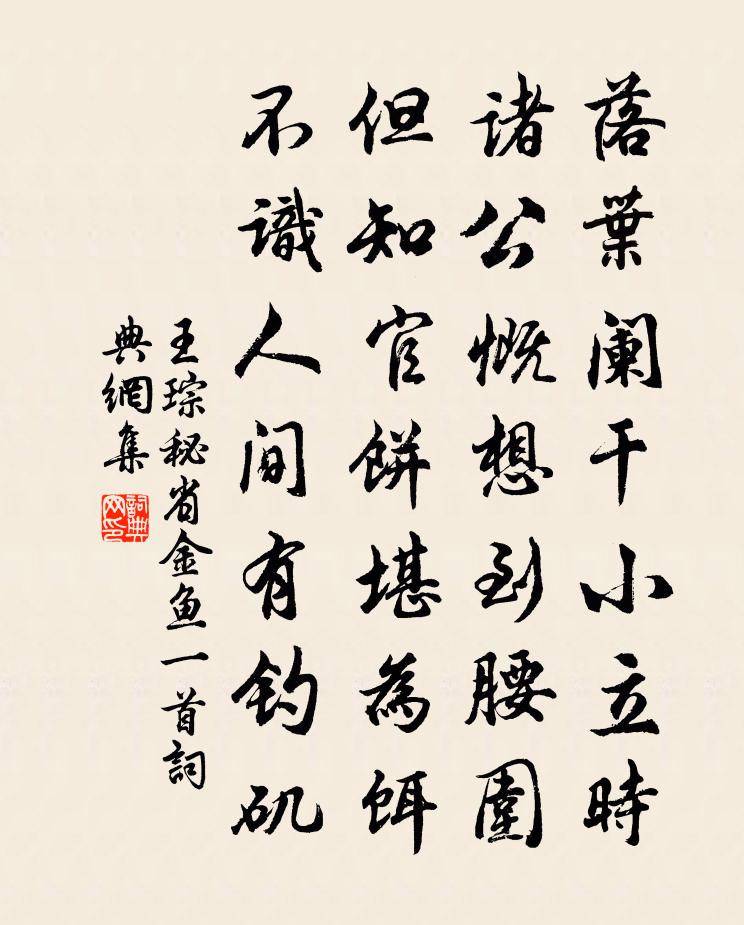 落葉阑干小立時
諸公慨想到腰圍
但知官餅堪為餌
不識人間有釣矶
王琮秘省金鱼一首詞
典網集
詞典
网印